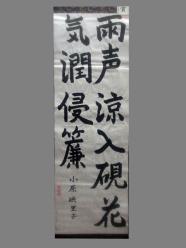 雨声涼入硯花
気潤侵簾
小原映里子